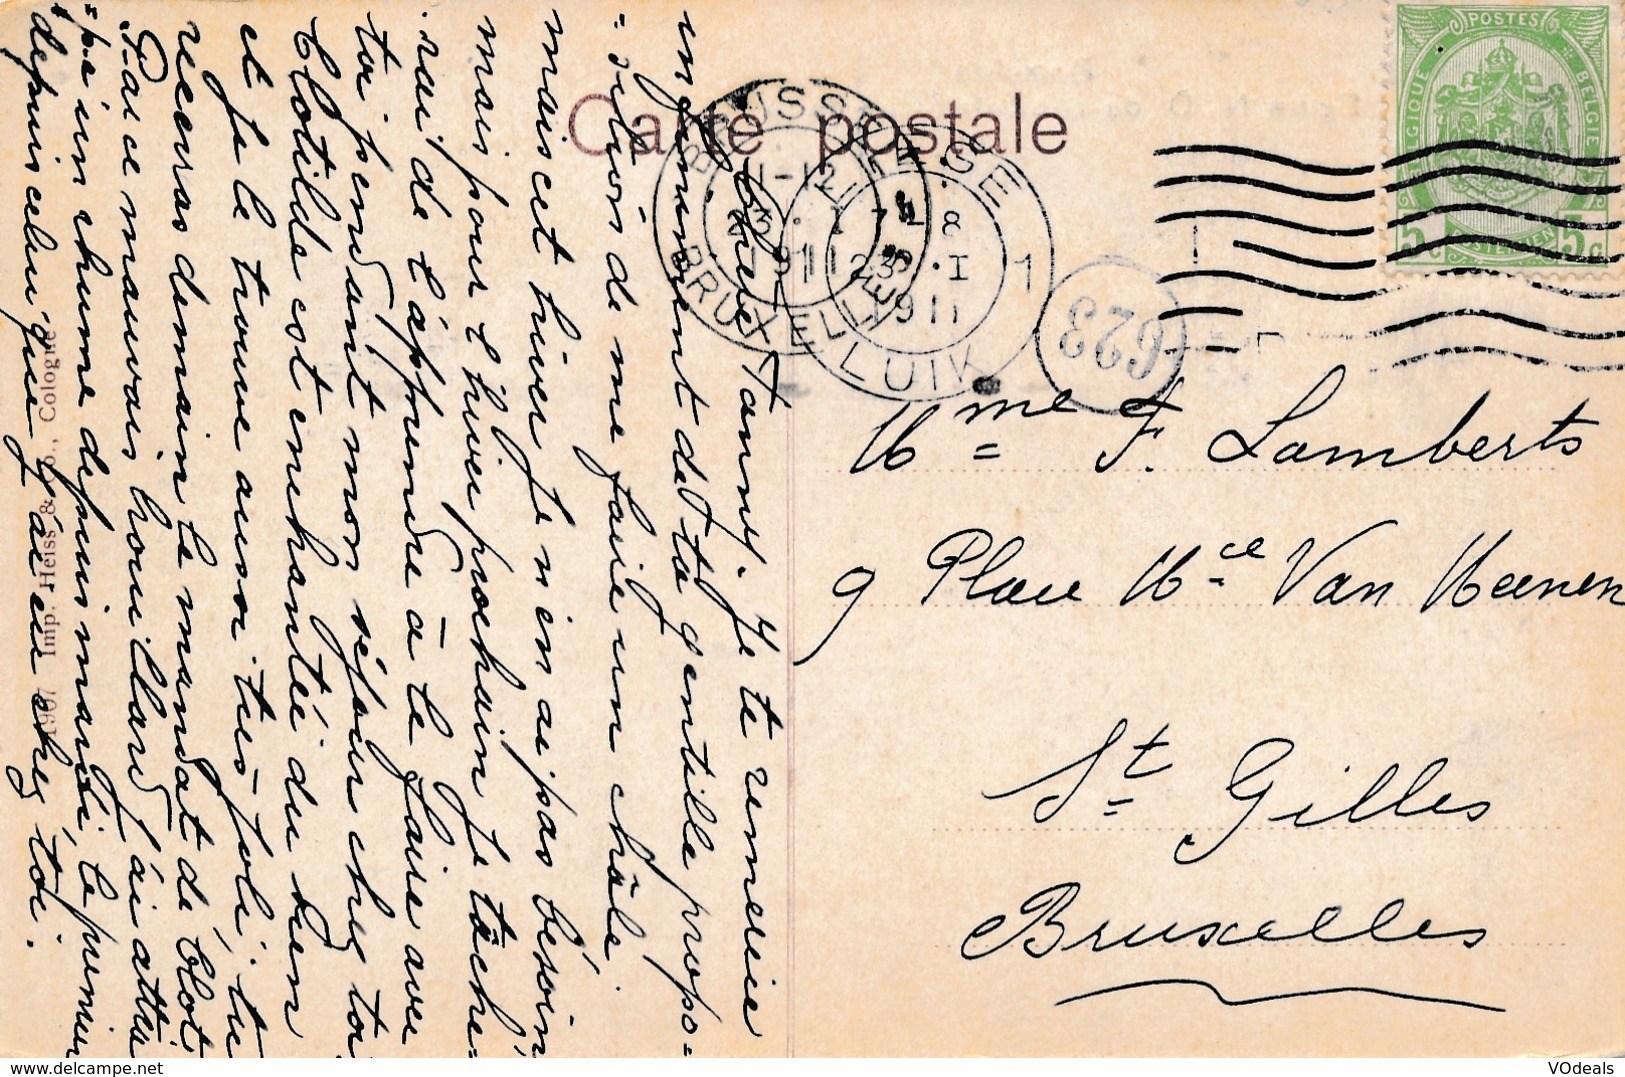 Carte postale
POSTES
BELGIQUE
BELGIE
5c
5c
BRUSSEL
BRUXELLES
LIEGE
LUIK
1
8
23 · I
1911
623
Chère Fanny. Je te remercie
infiniment de ta gentille propo-
=sition de me faire un châle
mais cet hiver je n'en ai pas bésoin
mais pour l'hiver prochain je tâche-
rai de l'apprendre à le faire avec
toi pendant mon séjour chez toi
Clotilde est enchantée du sien
et je le trouve aussi très joli, tu
recevras demain le mandat de Clot
Par ce mauvais brouillard j'ai attra
=pé un rhume depuis mardi le premier
depuis celui que j'ai eu chez toi.
1907 Imp. Heiss & Co., Cologne
Mme F. Lamberts
9 Place Mce Van Meenen
St Gilles
Bruxelles
VOdeals